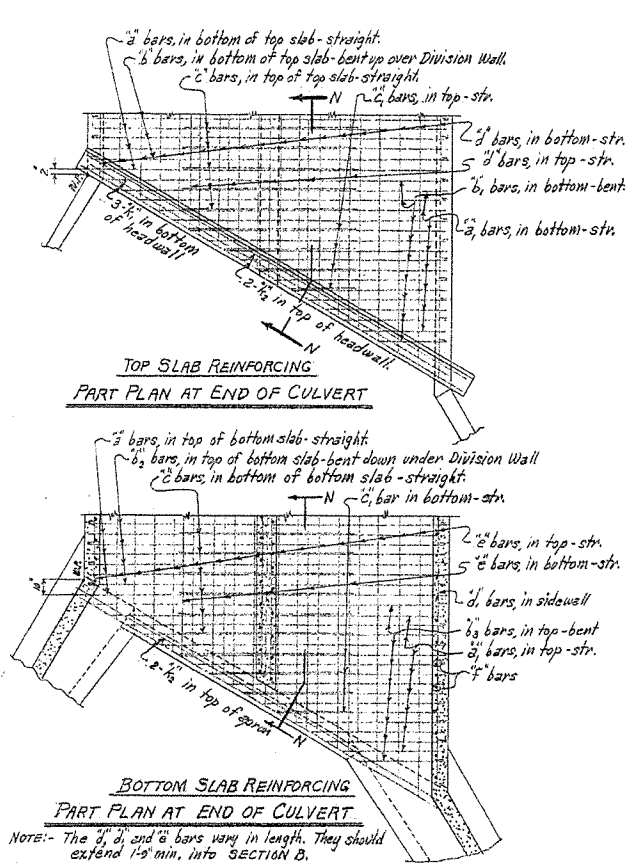 "a" bars, in bottom of top slab-straight.
"b" bars, in bottom of top slab-bent up over Division Wall.
"c" bars, in top of top slab-straight.
N
"c₁" bars, in top-str.
"d" bars, in bottom-str.
"d" bars, in top-str.
"b₁" bars, in bottom-bent.
"a₁" bars, in bottom-str.
2"
3-"k₁" in bottom
of headwall
2-"k₂" in top of headwall.
N
TOP SLAB REINFORCING
PART PLAN AT END OF CULVERT
"a" bars, in top of bottom slab-straight.
"b₂" bars, in top of bottom slab-bent down under Division Wall
"c" bars, in bottom of bottom slab-straight.
N
"c₁" bar in bottom-str.
"e" bars, in top-str.
"e" bars, in bottom-str.
"d₁" bars, in sidewall
"b₃" bars, in top-bent
"a₁" bars, in top-str.
"f" bars
10"
2-"k₂" in top of apron
N
BOTTOM SLAB REINFORCING
PART PLAN AT END OF CULVERT
NOTE:- The "d", "d₁" and "e" bars vary in length. They should
extend 1'-9" min. into SECTION B.